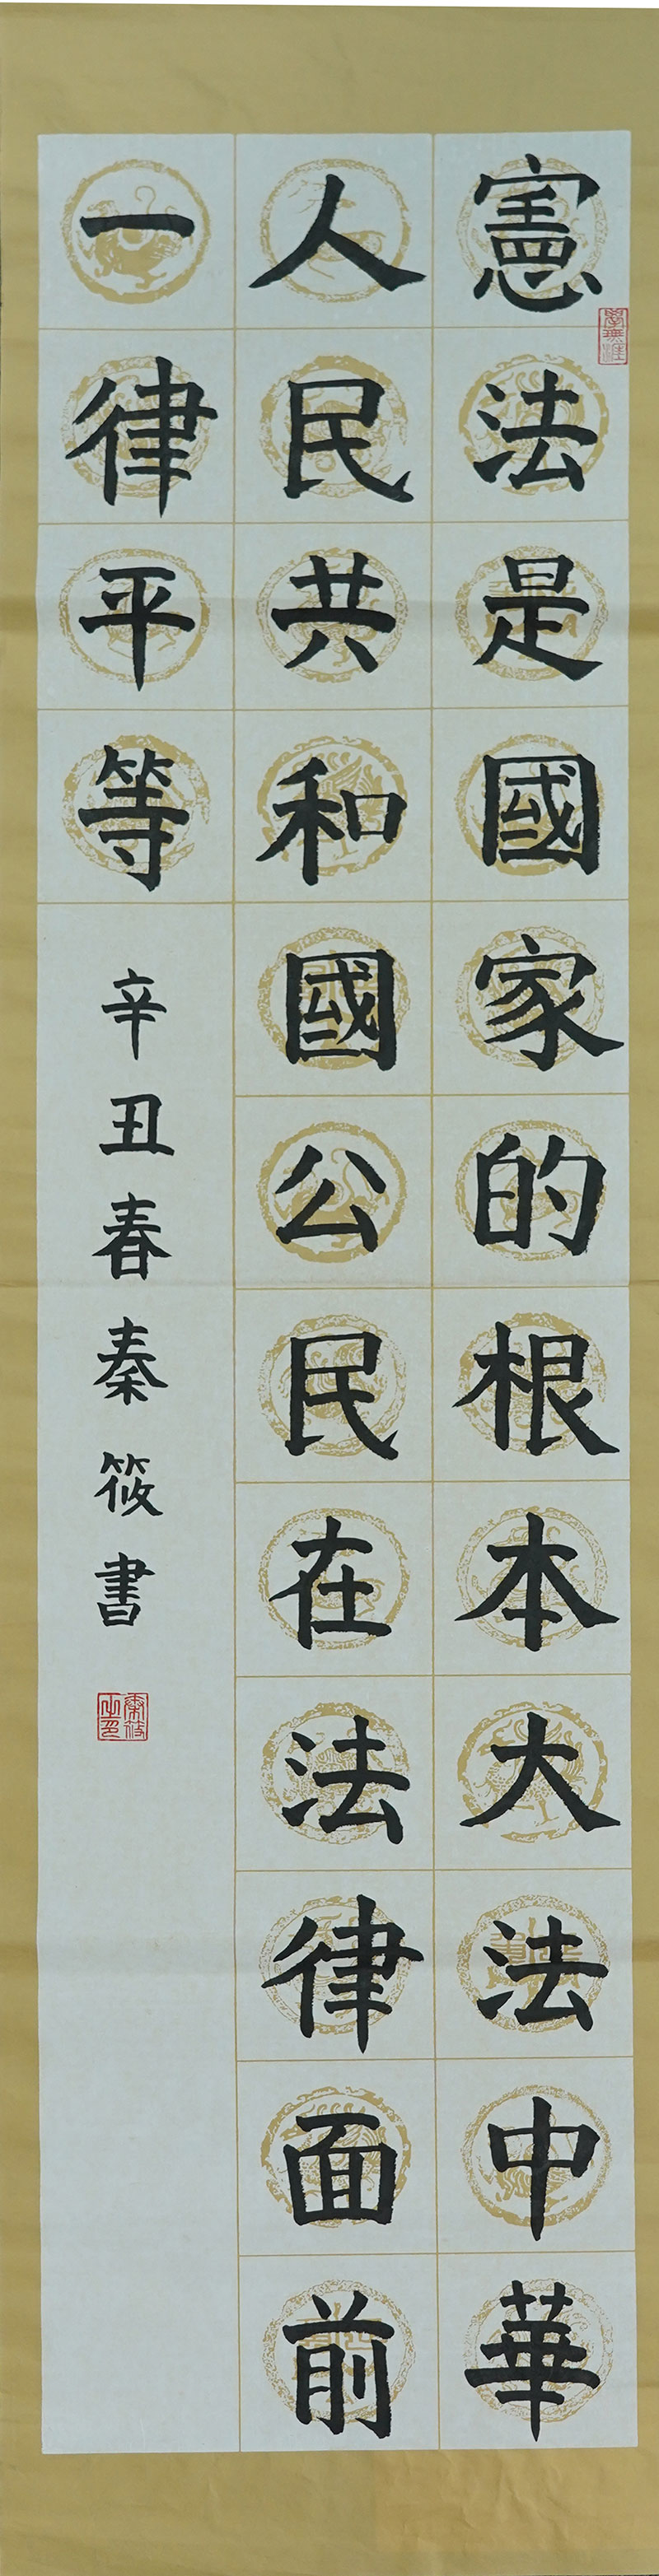 憲法是國家的根本大法中華
人民共和國公民在法律面前
一律平等
辛丑春秦筱書
學無涯
秦筱之印